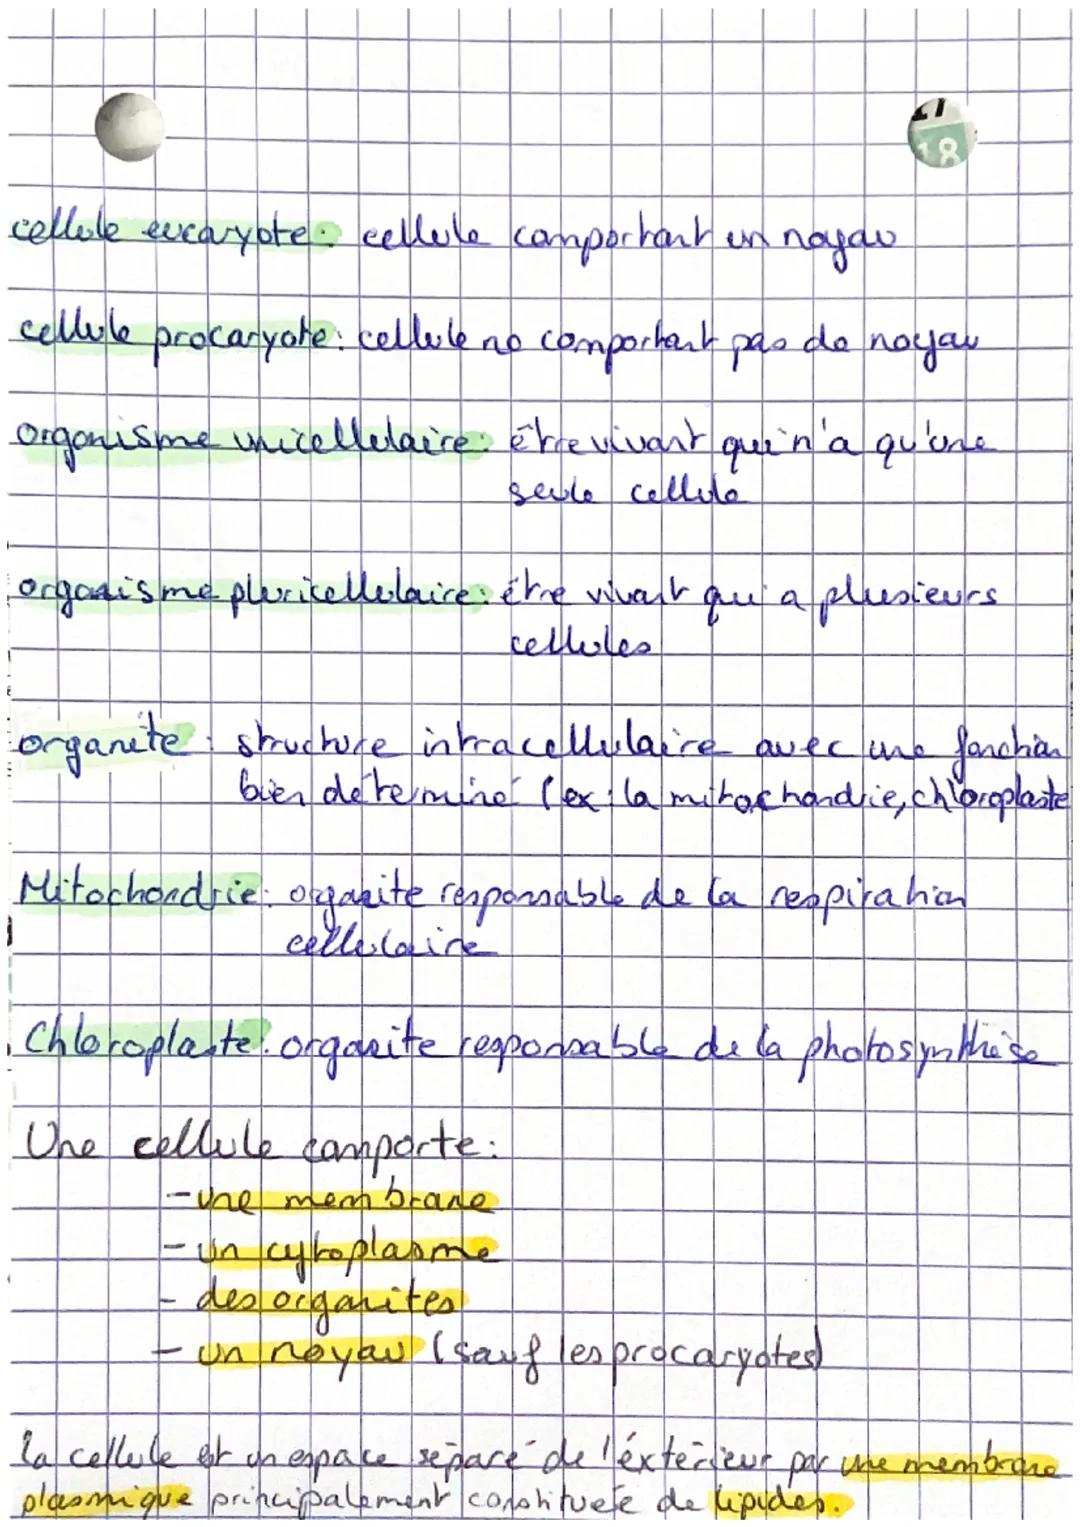 17
18
cellule eucaryote: cellule comportant un noyau
cellule procaryote: cellule ne comportant pas de noyau
organisme unicellulaire: être vivant qui n'a qu'une
seule cellule
organisme pluricellulaire: être vivant qui a plusieurs
cellules
organite: structure intracellulaire avec une fonction
bien déterminé (ex: la mitochondrie, chloroplaste
Mitochondrie: organite responsable de la respiration
cellulaire
Chloroplaste: organite responsable de la photosynthèse
Une cellule comporte:
- une membrane
- un cytoplasme
- des organites
- un noyau (sauf les procaryotes)
La cellule est un espace séparé de l'éxtérieur par une membrane
plasmique principalement constituée de lipides.